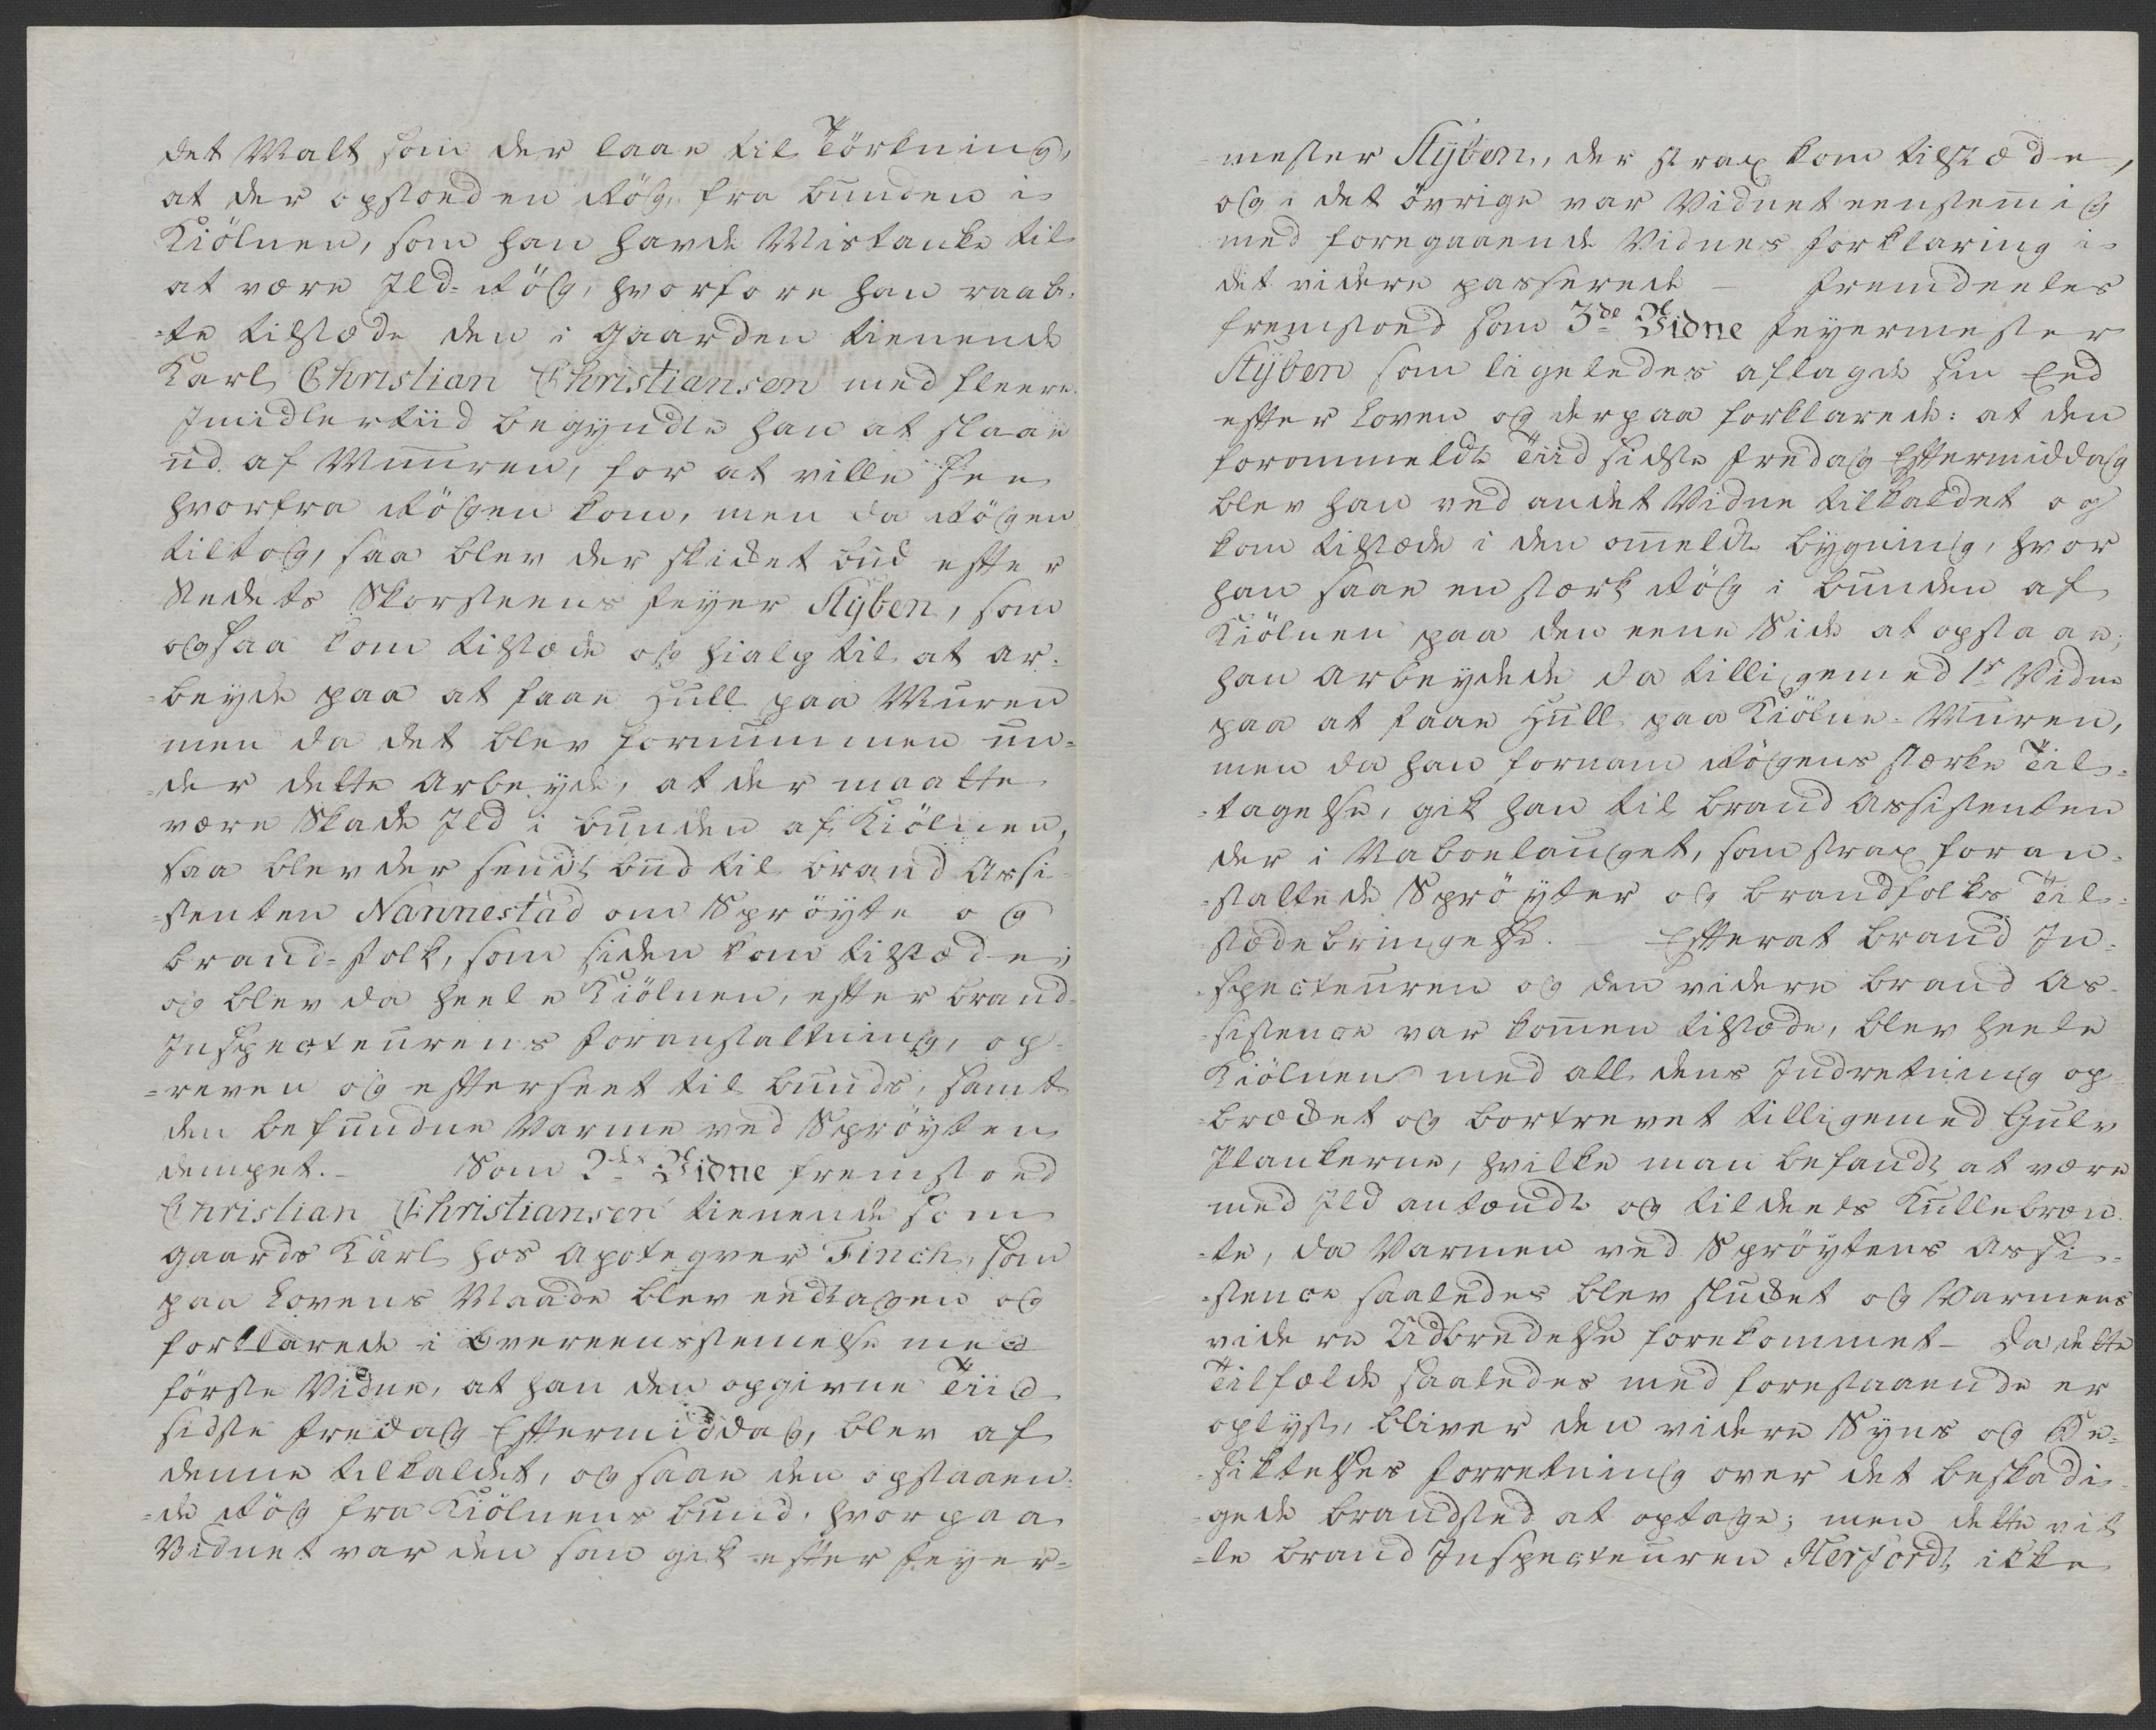 det Malt som der laae til Törkning,
at der opstoed en Rög, fra bunden i
Kiölnen, som han havde Mistanke til
at være Ild-Rög, hvorfore han raab-
-te tilstæde den i Gaarden tienende
Karl Christian Christiansen med fleere.
Imidlertiid begyndte han at slaae
ud af Muuren, for at ville see
hvorfra Rögen kom, men da Rögen
tiltog, saa blev der skicket bud efter
Stedets Skorsteens feyer Stÿben, som
ogsaa kom tilstæde og hialp til at ar-
-beyde paa at faae Hull paa Muren
men da det blev fornummen un-
-der dette Arbeyde, at der maatte
være Skade Ild i bunden af Kiölnen,
saa blev der sendt bud til brand Assi-
-stenten Nannestad om Spröyte og
brand-folk, som siden kom tilstæde;
og blev da heele Kiölnen, efter brand-
Inspecteurens foranstaltning, op-
-reven og efterseet til bunds, samt
den befundne Varme ved Spröyten
dempet. – Som 2de Vidne fremstoed
Christian Christiansen tienende som
gaards Karl hos Apoteqver Finch, som
paa Lovens Maade blev eedtagen og
forklarede i Overeensstemelse med
förste Vidne, at han den opgivne Tiid
sidste fredag Eftermiddag, blev af
denne tilkaldet, og saae den opstaaen-
-de Rög fra Kiölnens bund, hvorpaa
Vidnet var den som gik efter feyer-
-mester Stÿben, der strax kom tilstæde,
og i det övrige var Vidnet eenstemig
med foregaaende Vidnes forklaring i
det videre passerede – fremdeeles
fremstoed som 3de Vidne feyermester
Stÿben som ligeledes aflagde sin Eed
efter Loven og derpaa forklarede: at den
forommeldte Tiid sidste fredag Eftermiddag
blev han ved andet Vidne tilkaldet og
kom tilstæde i den omeldte bygning, hvor
han saae en stærk Rög i bunden af
Kiölnen paa den eene Side at opstaae;
han Arbeydede da tilligemed 1ste Vidne
paa at faae Hull paa Kiölne-Muren,
men da han fornam Rögens stærke Til-
-tagelse, gik han til brand Assistenten
der i Naboelauget, som strax foran-
-staltede Spröyter og brandfolks Til-
stædebringelse. – Efterat brand In-
-specteuren og den videre brand As-
-sistence var kommen tilstæde, blev heele
Kiölnen med all dens Indretning op-
-brækket og bortrevet tilligemed Gulv
Plankerne, hvilke man befandt at være
med Ild antændt og tildeels Kullebræn-
-te, da Varmen ved Spröytens Assi-
-stence saaledes blev slucket og Varmens
videre Udbredelse forekommet – da dette
Tilfælde saaledes med forestaaende er
oplyst, bliver den videre Syns og Be-
-sigtelses forretning over det beskadi-
-gede brandsted at optage; men dette vil-
-le brand Inspecteuren Herfordt ikke